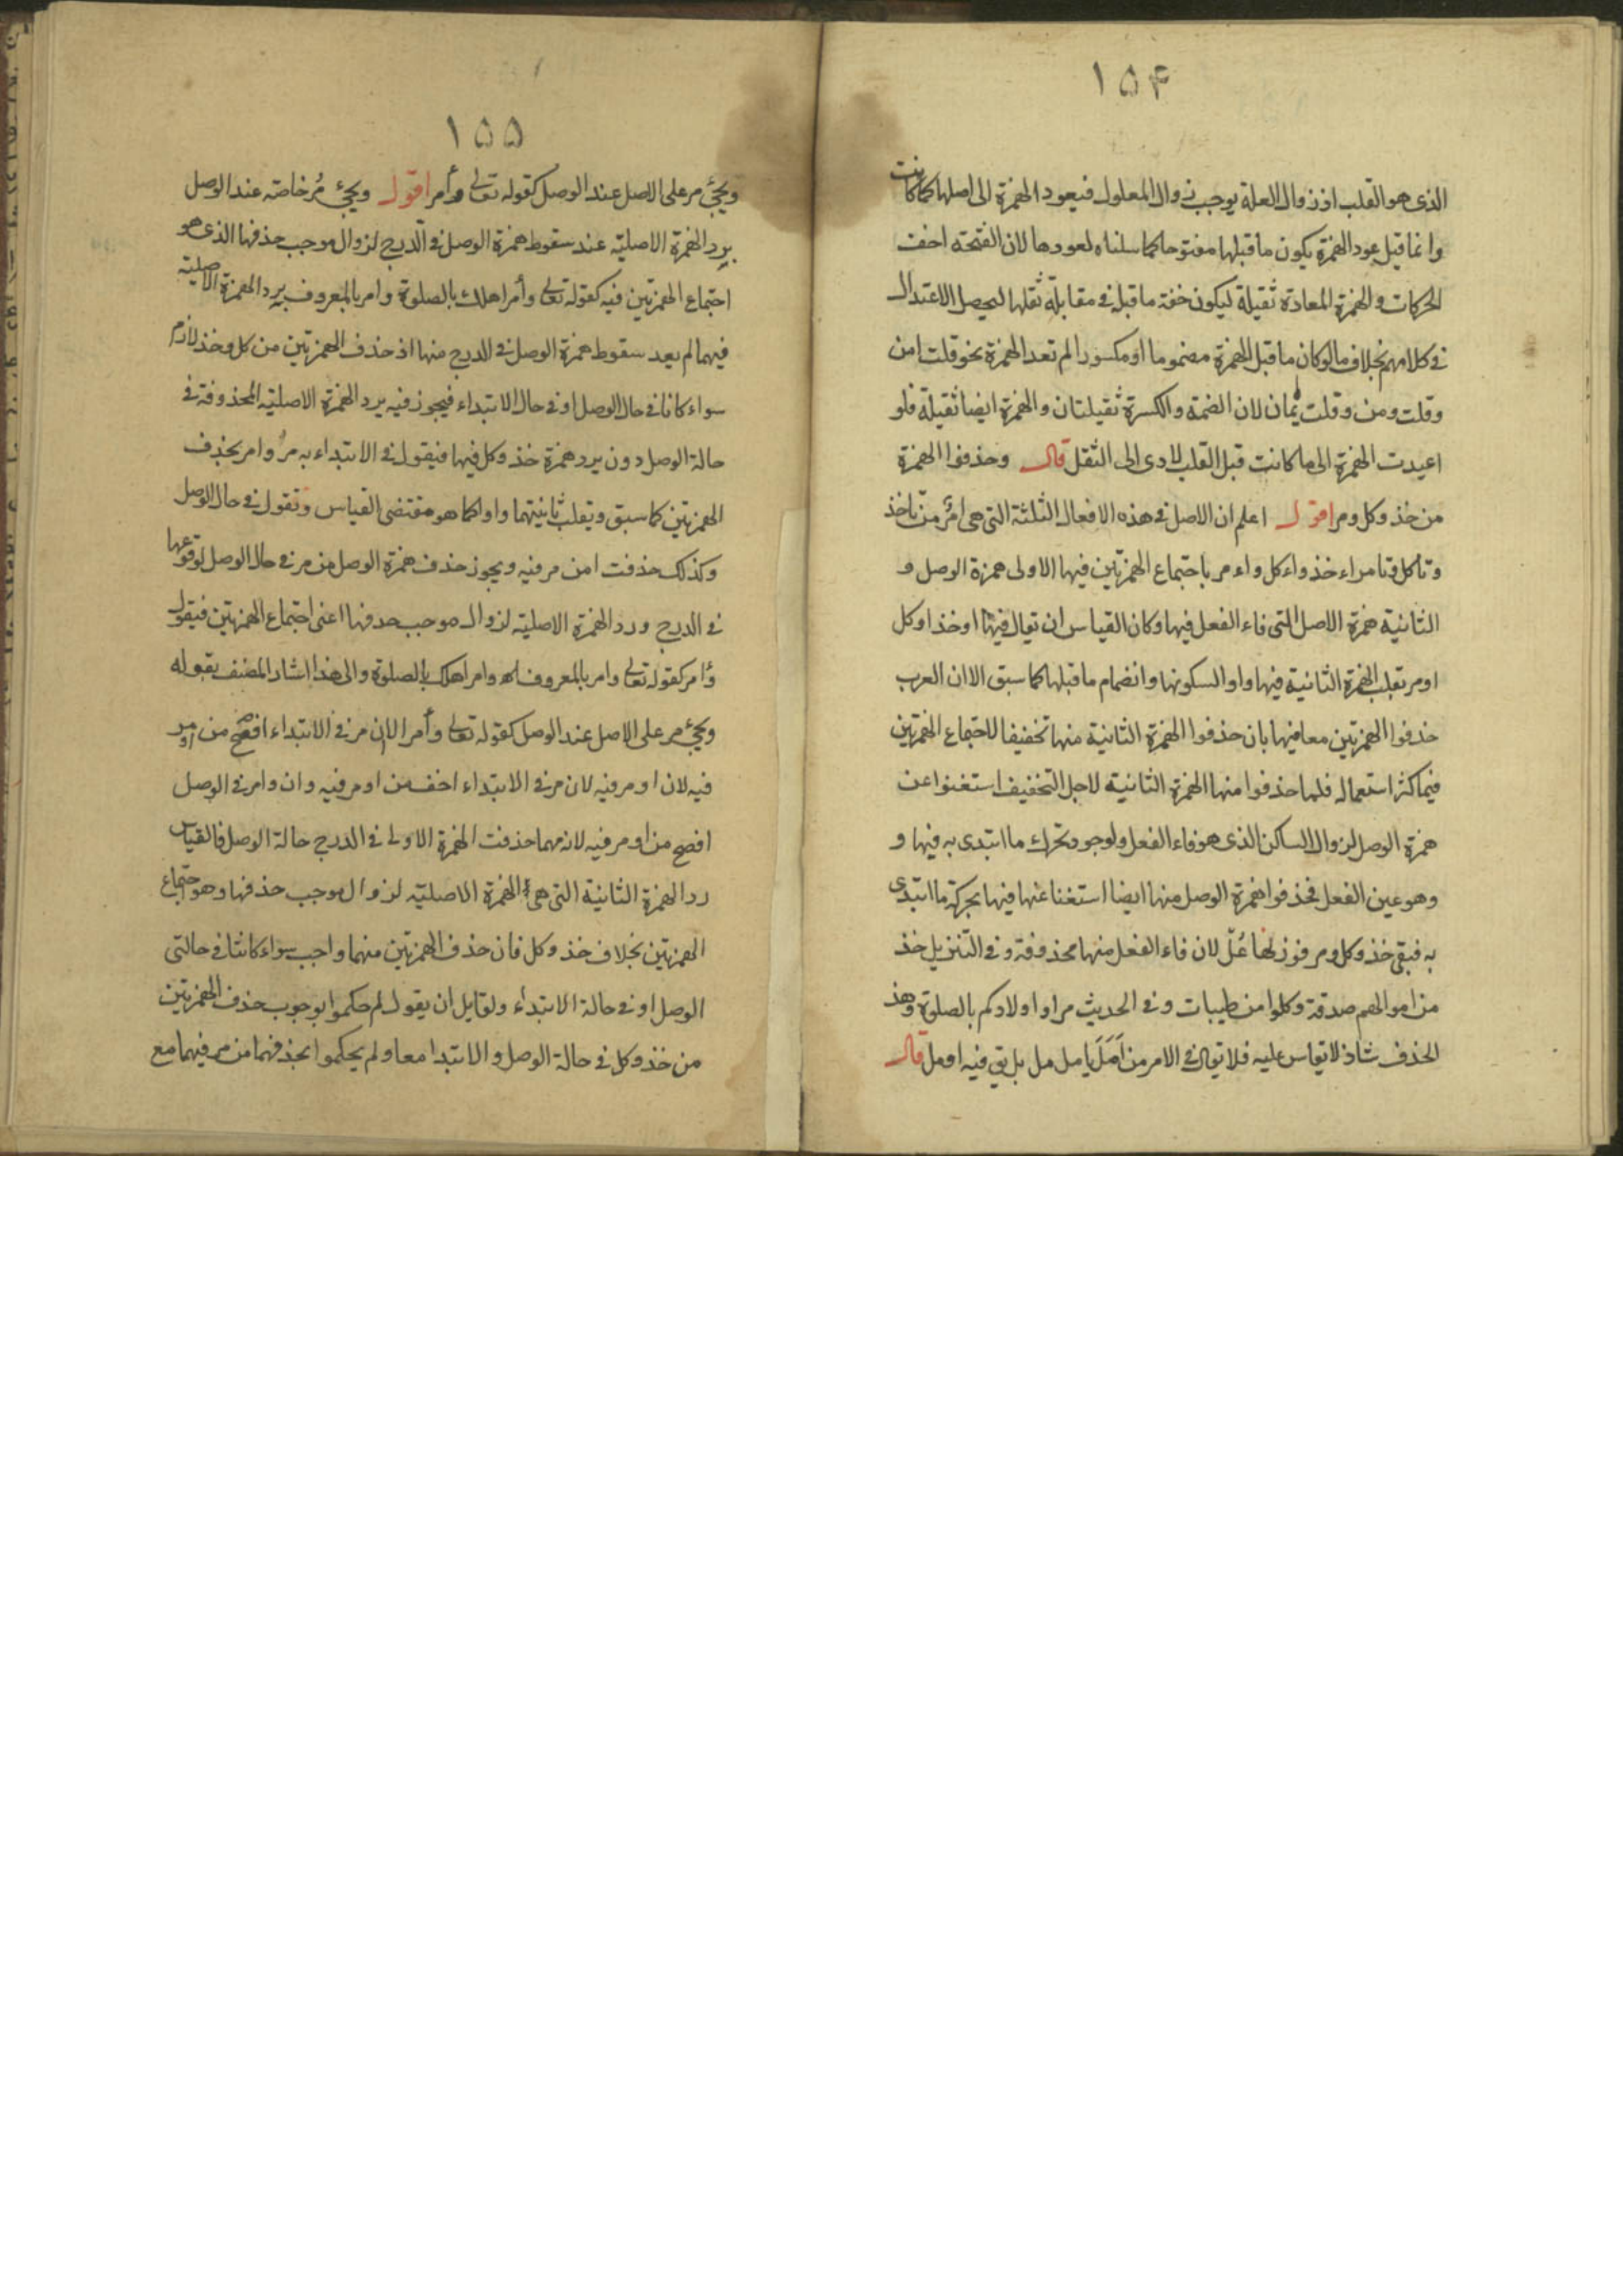 ۱۵۴
الذى هو القلب اذ زوال العلة يوجب زوال المعلول فيعود الهمزة الى اصلها كما كانت
وانما قيل بعود الهمزة بكون ما قبلها مفتوحا كما سلناه لعودها لان الفتحة اخف
الحركات والهمزة المعادة ثقيلة ليكون خفة ما قبله فى مقابلة ثقلها ليحصل الاعتدال
فى كلامهم بخلاف ما لو كان ما قبل الهمزة مضموما او مكسورا لم تعد الهمزة نحو قلت امن
وقلت ومن وقلت يمان لان الضمة والكسرة ثقيلتان والهمزة ايضا ثقيلة فلو
اعيدت الهمزة الى ما كانت قبل القلب لادى الى الثقل قال وحذفوا الهمزة
من خذ وكل ومر اقول اعلم ان الاصل فى هذه الافعال الثلثة التى هى امر من تاخذ
وتاكل وتامر اءخذ واءكل واءمر باجتماع الهمزتين فيها الاولى همزة الوصل و
الثانية همزة الاصل التى فاء الفعل فيها وكان القياس ان تقال فيها اوخذ اوكل
اومر بقلب الهمزة الثانية فيها واوا لسكونها وانضمام ما قبلها كما سبق الا ان العرب
حذفوا الهمزتين معا فيها بان حذفوا الهمزة الثانية منها تخفيفا لاجتماع الهمزتين
فيما كثر استعماله فلما حذفوا منها الهمزة الثانية لاجل التخفيف استغنوا عن
همزة الوصل لزوال الساكن الذى هو فاء الفعل ولوجود تحرك ما ابتدى به فيها و
وهو عين الفعل فحذفوا همزة الوصل منها ايضا استغنا عنها فيها بحركة ما ابتدى
به فبقى خذ وكل ومر فوزنها عُلْ لان فاء الفعل منها محذوفة وفى التنزيل خذ
من اموالهم صدقة وكلوا من طيبات وفى الحديث مراوا اولادكم بالصلوة وهذ
الحذف شاذ لا يقاس عليه فلا يقال فى الامر من اَمَلَ يامل مل بل بقى فيه اومل قال
۱۵۵
ويجئ مر على الاصل عند الوصل كقوله تعالى وأمر اقول ويجئ مُر خاصة عند الوصل
برد الهمزة الاصلية عند سقوط همزة الوصل فى الدرج لزوال موجب حذفها الذى هو
اجتماع الهمزتين فيه كقوله تعالى وأمر اهلك بالصلوة وامر بالمعروف برد الهمزة الاصلية
فيهما لم بعد سقوط همزة الوصل فى الدرج منها اذ حذف الهمزتين من كل وخذ لازم
سواء كانا فى حال الوصل او فى حال الابتداء فيجوز فيه برد الهمزة الاصلية المحذوفة فى
حالة الوصل دون برد همزة خذ وكل فيها فيقول فى الابتداء به مُر وامر بحذف
الهمزتين كما سبق وبقلب ثانيتهما واوا كما هو مقتضى القياس وتقول فى حال الوصل
وكذلك حذفت امن مر فيه ويجوز حذف همزة الوصل من مر فى حال الوصل لوقوعها
فى الدرج ورد الهمزة الاصلية لزوال موجب حذفها اعنى اجتماع الهمزتين فيقول
وأمر كقوله تعالى وامر بالمعروف وامر اهلك بالصلوة والى هذا اشار المصنف بقوله
ويجئ مر على الاصل عند الوصل كقوله تعالى وأمر الا ان مر فى الابتداء افصح من اومر
فيه لان اومر فيه لان مر فى الابتداء اخف من اومر فيه وان وامر فى الوصل
افصح من اومر فيه لانه مهما حذفت الهمزة الاولى فى الدرج حالة الوصل فالقياس
رد الهمزة الثانية التى هى الهمزة الاصلية لزوال موجب حذفها وهو اجتماع
الهمزتين بخلاف خذ وكل فان حذف الهمزتين منهما واجب سواء كانتا فى حالتى
الوصل او فى حالة الابتداء ولقايل ان يقول لم حكموا بوجوب حذف الهمزتين
من خذ وكل فى حالة الوصل والابتدا معا ولم يحكموا بحذفهما من مر فيهما مع